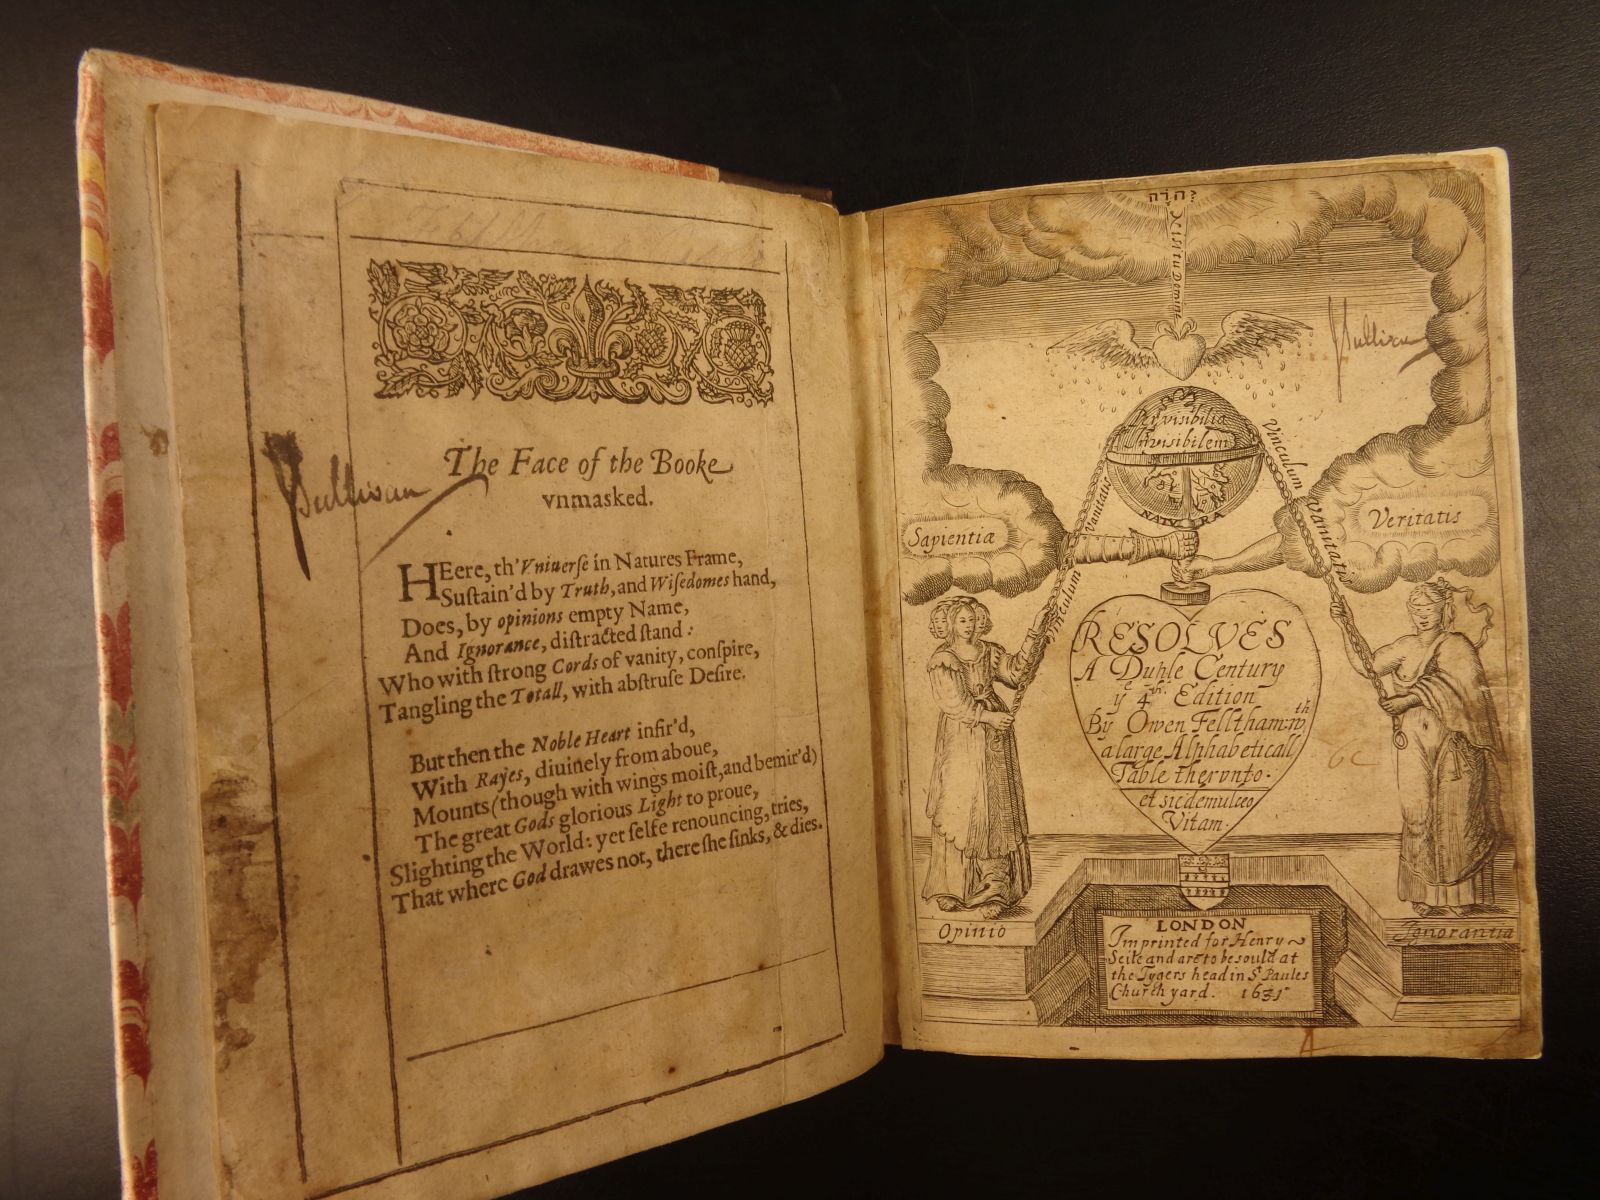 The Face of the Booke
vnmasked.
Sullivan
HEere, th' Vniuerſe in Natures Frame,
Suſtain'd by Truth, and Wiſedomes hand,
Does, by opinions empty Name,
And Ignorance, diſtracted ſtand:
Who with ſtrong Cords of vanity, conſpire,
Tangling the Totall, with abſtruſe Deſire.
But then the Noble Heart infir'd,
With Rayes, diuinely from aboue,
Mounts (though with wings moiſt, and bemir'd)
The great Gods glorious Light to proue,
Slighting the World: yet ſelfe renouncing, tries,
That where God drawes not, there ſhe ſinks, & dies.
יהוה
Sullivan
Per visibilia
Invisibilem
NATVRA
Vinculum Vanitatis
Vinculum Vanitatis
Sapientiæ
Veritatis
RESOLVES
A Duple Century
yᵉ 4ᵗʰ. Edition
By Owen Felltham: wᵗʰ
a large Alphabeticall
Table thervnto.
et sic demulceo
Vitam.
6C
Opinio
Ignorantia
LONDON
Imprinted for Henry
Seile and are to be sould at
the Tygers head in Sᵗ Paules
Church yard. 1631